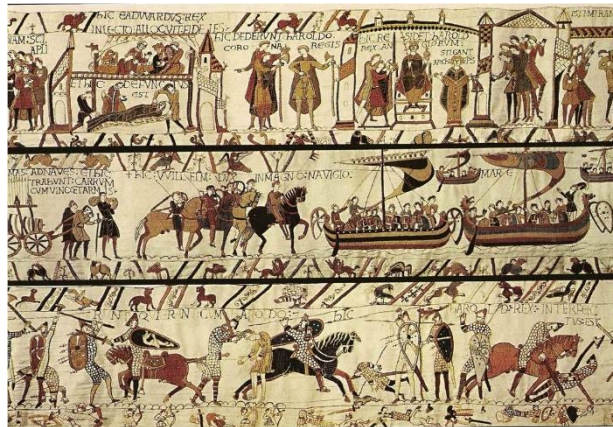 hIC EADVVARDVS:REX
INLECTO:ALLOQVIT:FIDELES:
ET hIC:DEFVNCTVS
EST
hIC DEDERVNT:hAROLDO:
CORONA REGIS
hIC RESIDET:hAROLD
REX ANGLORVM:
STIGANT
ARChIEPS
ISTI MIRA
ADNAVES:ETHIC
TRAhVNT:CARRVM
CVMVINO:ETARMIS:
hIC:VVILLELM:DVX INMAGNO:NAVIGIO:
MARE
CVM hAROLDO:
hIC hAROLD:REX:INTERFEC
TVS:EST